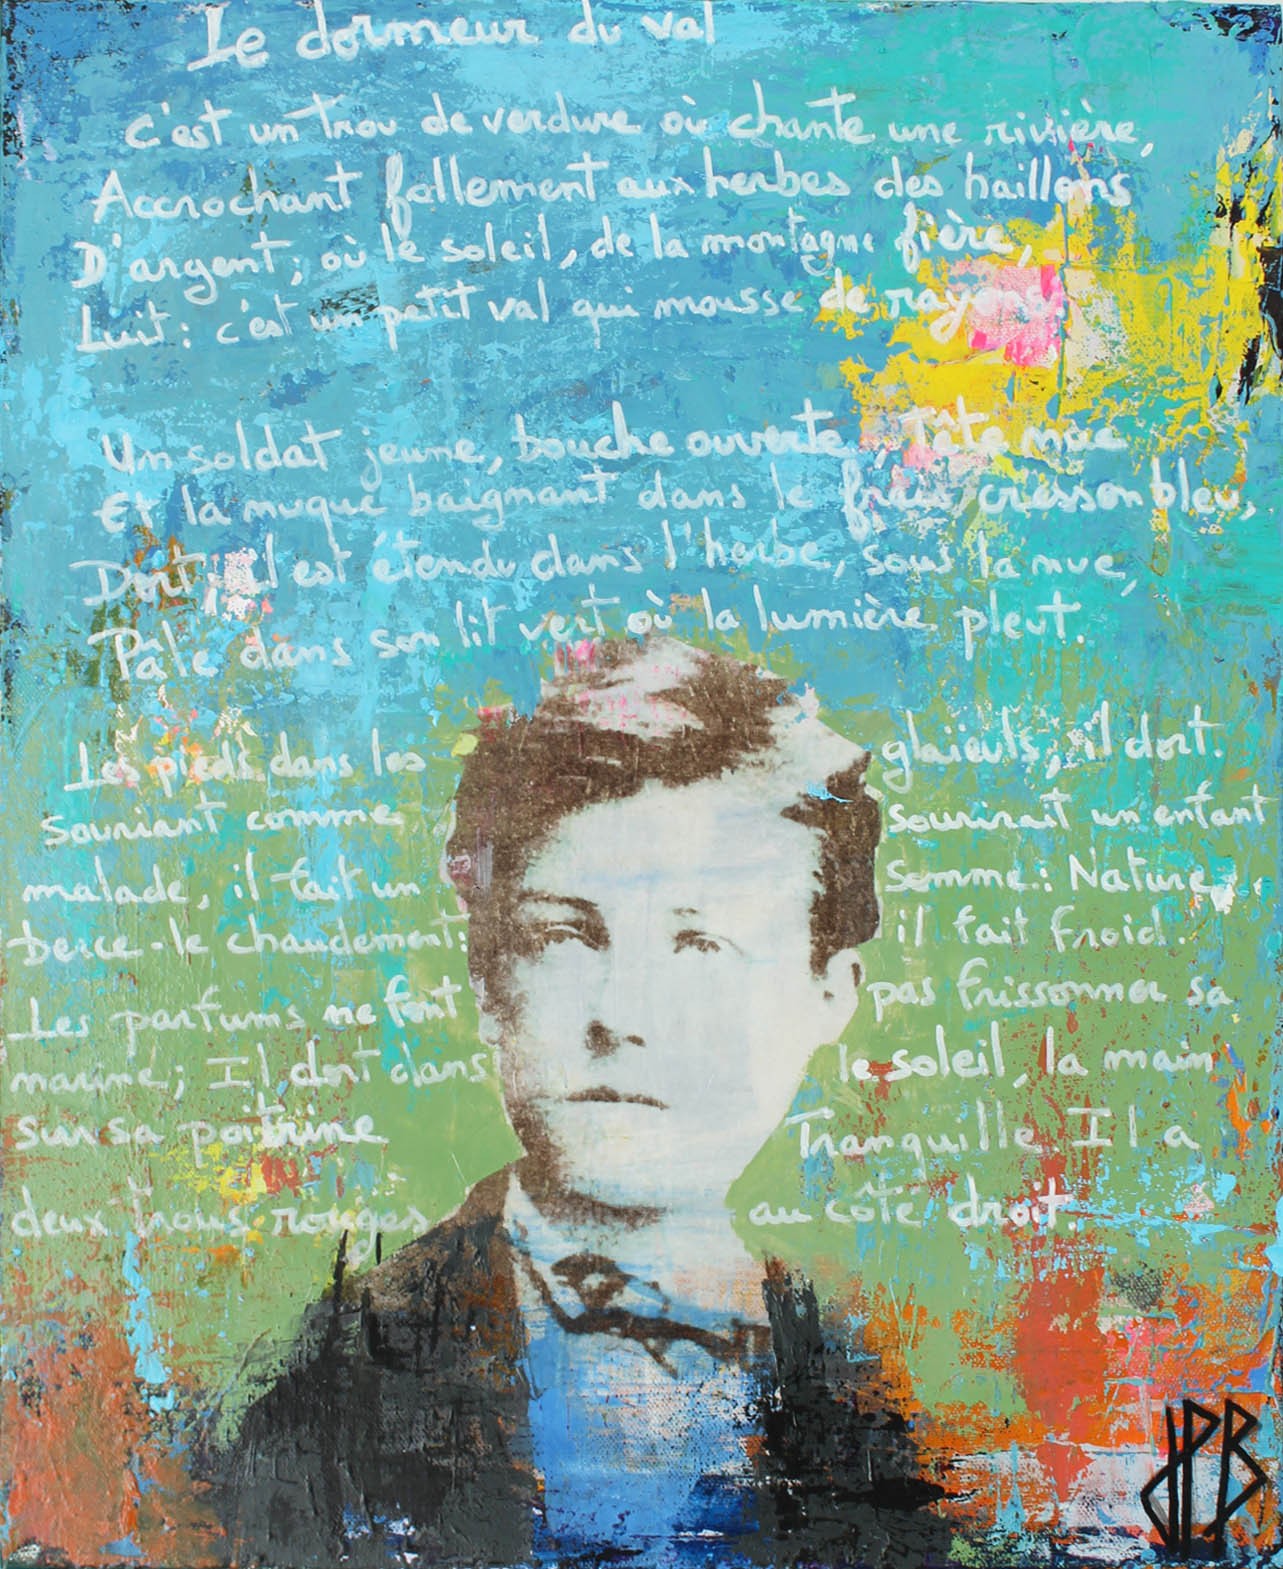 Le dormeur du val
C'est un trou de verdure où chante une rivière,
Accrochant follement aux herbes des haillons
D'argent; où le soleil, de la montagne fière,
Luit: c'est un petit val qui mousse de rayons.
Un soldat jeune, bouche ouverte, Tête nue
Et la nuque baignant dans le frais cresson bleu,
Dort; il est étendu dans l'herbe, sous la nue,
Pâle dans son lit vert où la lumière pleut.
Les pieds dans les glaïeuls, il dort.
Souriant comme Sourirait un enfant
malade, il fait un Somme: Nature,
berce-le chaudement: il fait froid.
Les parfums ne font pas frissonner sa
narine; Il dort dans le soleil, la main
Sur sa poitrine Tranquille Il a
deux trous rouges au côté droit.
JPB